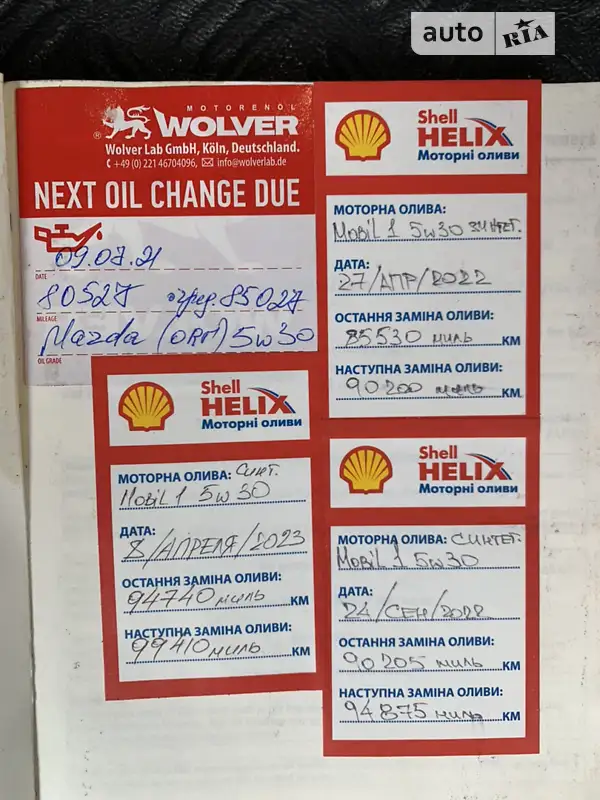 auto RIA
MOTORENÖL
WOLVER
Wolver Lab GmbH, Köln, Deutschland.
+49 (0) 221 46704096, info@wolverlab.de
NEXT OIL CHANGE DUE
09.07.21
DATE
80527 след. 85027
MILEAGE
Mazda (ORM) 5w30
OIL GRADE
Shell
HELIX
Моторні оливи
МОТОРНА ОЛИВА:
Mobil 1 5w30 синтет.
ДАТА:
27/АПР/2022
ОСТАННЯ ЗАМІНА ОЛИВИ:
85530 миль КМ
НАСТУПНА ЗАМІНА ОЛИВИ:
90200 миль КМ
Shell
HELIX
Моторні оливи
МОТОРНА ОЛИВА: Синт.
Mobil 1 5w30
ДАТА:
8/АПРЕЛЯ/2023
ОСТАННЯ ЗАМІНА ОЛИВИ:
94740 миль КМ
НАСТУПНА ЗАМІНА ОЛИВИ:
99410 миль КМ
Shell
HELIX
Моторні оливи
МОТОРНА ОЛИВА: СИНТЕТ.
Mobil 1 5w30
ДАТА:
24/СЕН/2022
ОСТАННЯ ЗАМІНА ОЛИВИ:
90205 миль КМ
НАСТУПНА ЗАМІНА ОЛИВИ:
94875 миль КМ